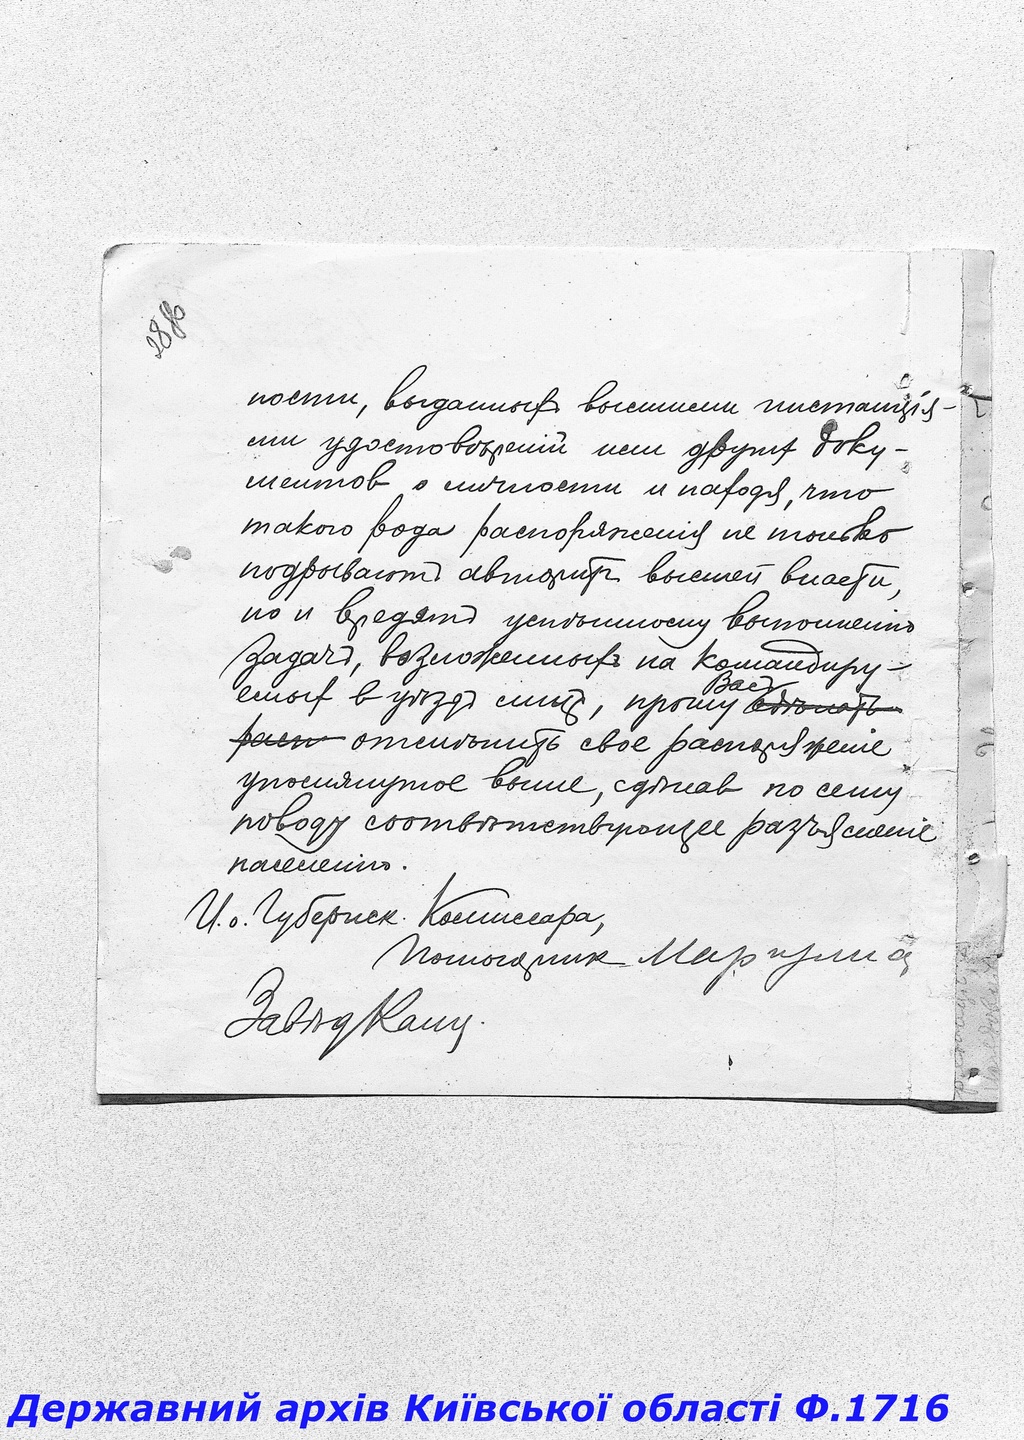 28 об
ности, выданных высшими инстанція-
ми удостовѣреній или других доку-
ментов о личности и находя, что
такого рода распоряженія не только
подрывают авторитет высшей власти,
но и вредятъ успѣшному выполненію
задачъ, возложенныхъ на командиру-
емых в уѣздъ лицъ, прошу Васъ сдѣлать
расп отмѣнить свое распоряженіе
упомянутое выше, сдѣлав по сему
поводу соотвѣтствующее разъясненіе
населенію.
И.о. Губернск. Комиссара,
Помощник
Завѣд Канц.
Державний архів Київської області Ф.1716